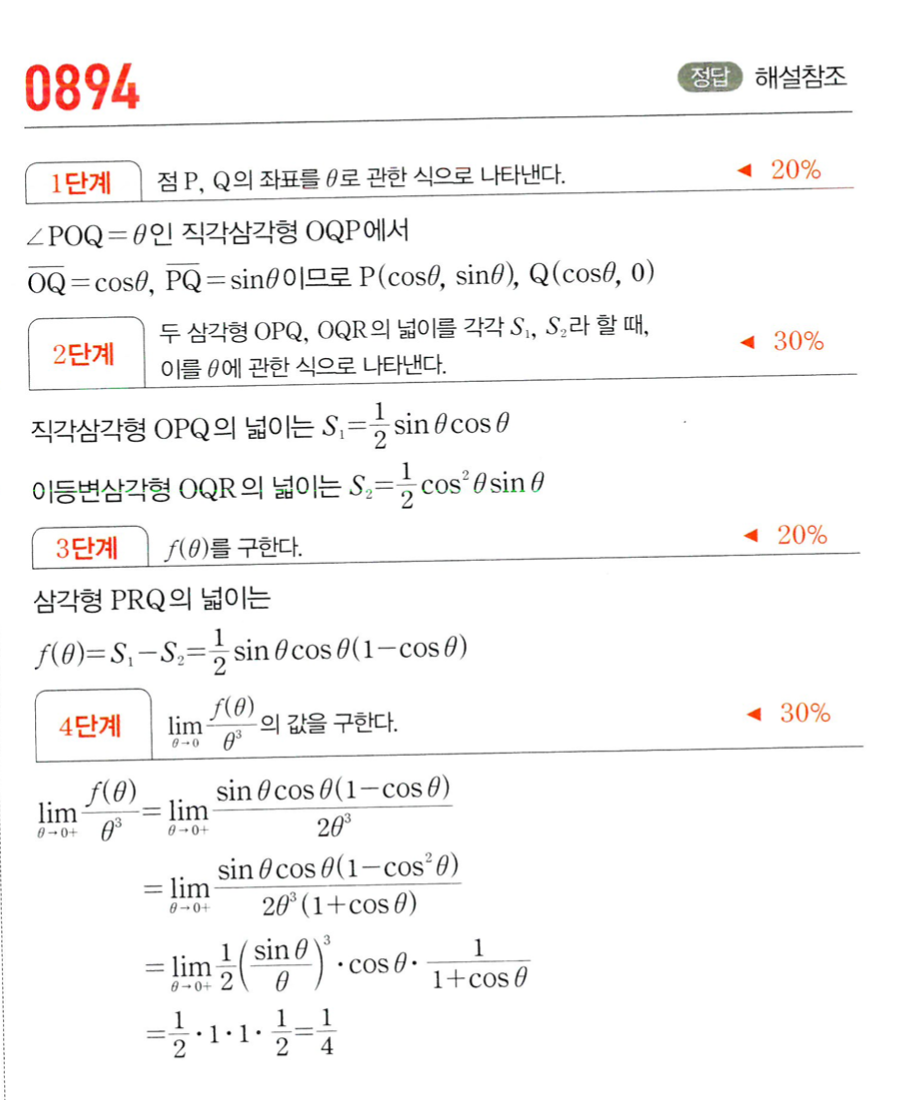 0894 정답 해설참조
1단계 점 P, Q의 좌표를 θ로 관한 식으로 나타낸다. ◀ 20%
∠POQ=θ인 직각삼각형 OQP에서
$\overline{OQ}$=cosθ, $\overline{PQ}$=sinθ이므로 P(cosθ, sinθ), Q(cosθ, 0)
2단계 두 삼각형 OPQ, OQR의 넓이를 각각 S₁, S₂라 할 때, ◀ 30%
이를 θ에 관한 식으로 나타낸다.
직각삼각형 OPQ의 넓이는 $S_1=\frac{1}{2}\sin\theta\cos\theta$
이등변삼각형 OQR의 넓이는 $S_2=\frac{1}{2}\cos^2\theta\sin\theta$
3단계 f(θ)를 구한다. ◀ 20%
삼각형 PRQ의 넓이는
$f(\theta)=S_1-S_2=\frac{1}{2}\sin\theta\cos\theta(1-\cos\theta)$
4단계 $\lim_{\theta\to 0}\frac{f(\theta)}{\theta^3}$의 값을 구한다. ◀ 30%
$\lim_{\theta\to 0+}\frac{f(\theta)}{\theta^3}=\lim_{\theta\to 0+}\frac{\sin\theta\cos\theta(1-\cos\theta)}{2\theta^3}$
$=\lim_{\theta\to 0+}\frac{\sin\theta\cos\theta(1-\cos^2\theta)}{2\theta^3(1+\cos\theta)}$
$=\lim_{\theta\to 0+}\frac{1}{2}\left(\frac{\sin\theta}{\theta}\right)^3\cdot\cos\theta\cdot\frac{1}{1+\cos\theta}$
$=\frac{1}{2}\cdot 1\cdot 1\cdot\frac{1}{2}=\frac{1}{4}$